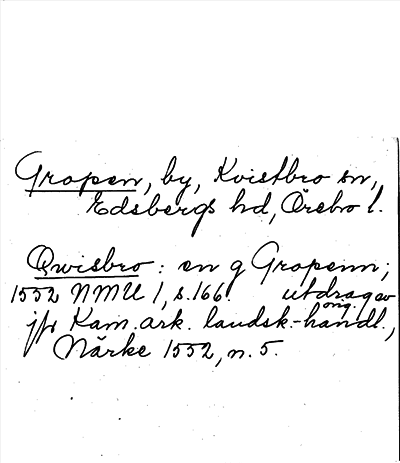 Gropen, by, Kvistbro sn,
Edsbergs hd, Örebro l.
Qwisbro: en g Gropenn;
1552 NMU 1, s. 166. utdrag av
orig.
jfr Kam. ark. landsk.-handl.,
Närke 1552, n. 5.